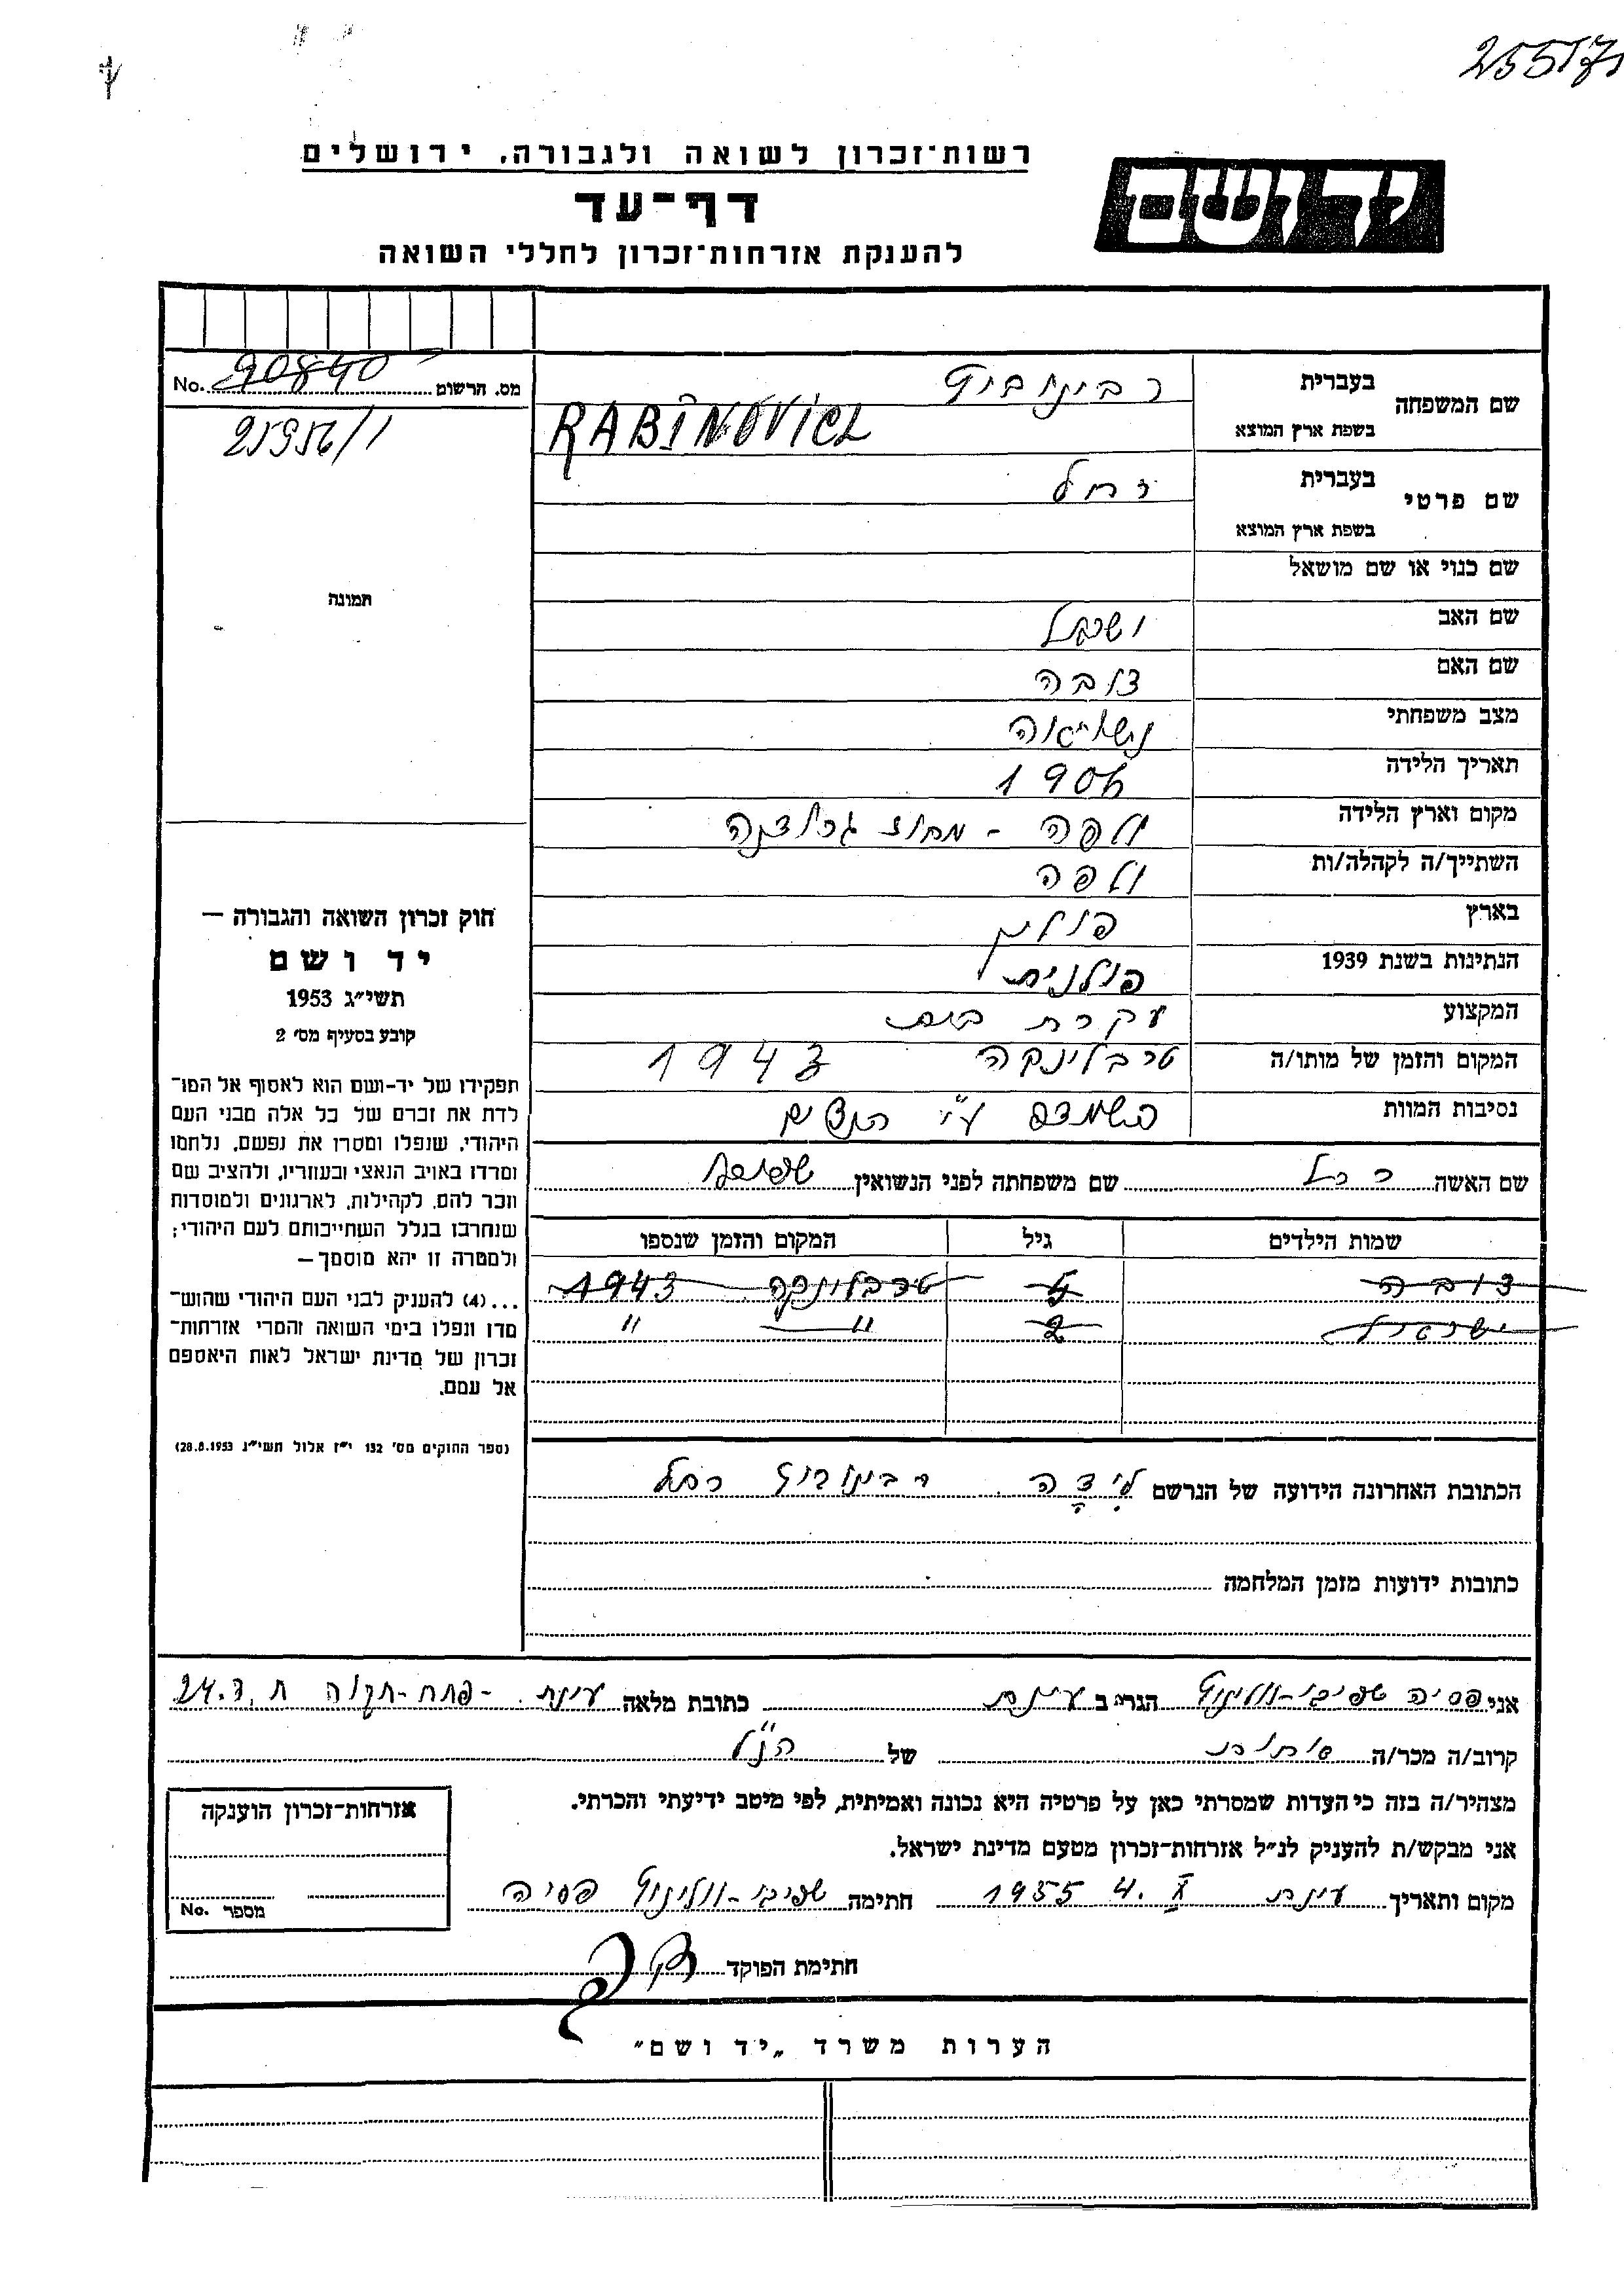 25517
רשות־זכרון לשואה ולגבורה, ירושלים
יד ושם
דף־עד
להענקת אזרחות־זכרון לחללי השואה
No. 90840 מס. הרשום
25956/1
תמונה
שם המשפחה
בעברית רבינוביץ
בשפת ארץ המוצא RABINOVICZ
שם פרטי
בעברית רחל
בשפת ארץ המוצא
שם כנוי או שם מושאל
שם האב ישראל
שם האם
מצב משפחתי נשואה
תאריך הלידה 1906
מקום וארץ הלידה - מחוז
השתייך/ה לקהלה/ות
בארץ פולין
הנתינות בשנת 1939 פולנית
המקצוע עקרת בית
המקום והזמן של מותו/ה טרבלינקה 1943
נסיבות המוות ע"י הנצים
שם האשה רחל שם משפחתה לפני הנשואין
שמות הילדים גיל המקום והזמן שנספו
טרבלינקה 1943
ישראל 2 " "
הכתובת האחרונה הידועה של הנרשם רבינוביץ רחל
כתובות ידועות מזמן המלחמה
חוק זכרון השואה והגבורה —
יד ושם
תשי"ג 1953
קובע בסעיף מס' 2
תפקידו של יד-ושם הוא לאסוף אל המו־
לדת את זכרם של כל אלה מבני העם
היהודי, שנפלו ומסרו את נפשם, נלחמו
ומרדו באויב הנאצי ובעוזריו, ולהציב שם
וזכר להם, לקהילות, לארגונים ולמוסדות
שנחרבו בגלל השתייכותם לעם היהודי;
ולמטרה זו יהא מוסמך—
...(4) להעניק לבני העם היהודי שהוש־
מדו ונפלו בימי השואה והמרי אזרחות־
זכרון של מדינת ישראל לאות היאספם
אל עמם.
(ספר החוקים מס' 132 י"ז אלול תשי"ג 28.8.1953)
אני פסיה הגר/ה ב עינת כתובת מלאה עינת - פתח-תקוה ת.ד. 24
קרוב/ה מכר/ה של הנ"ל
מצהיר/ה בזה כי העדות שמסרתי כאן על פרטיה היא נכונה ואמיתית, לפי מיטב ידיעתי והכרתי.
אני מבקש/ת להעניק לנ"ל אזרחות־זכרון מטעם מדינת ישראל.
מקום ותאריך עינת 4. X 1955 חתימה פסיה
חתימת הפוקד
אזרחות־זכרון הוענקה
No. מספר
הערות משרד „יד ושם"